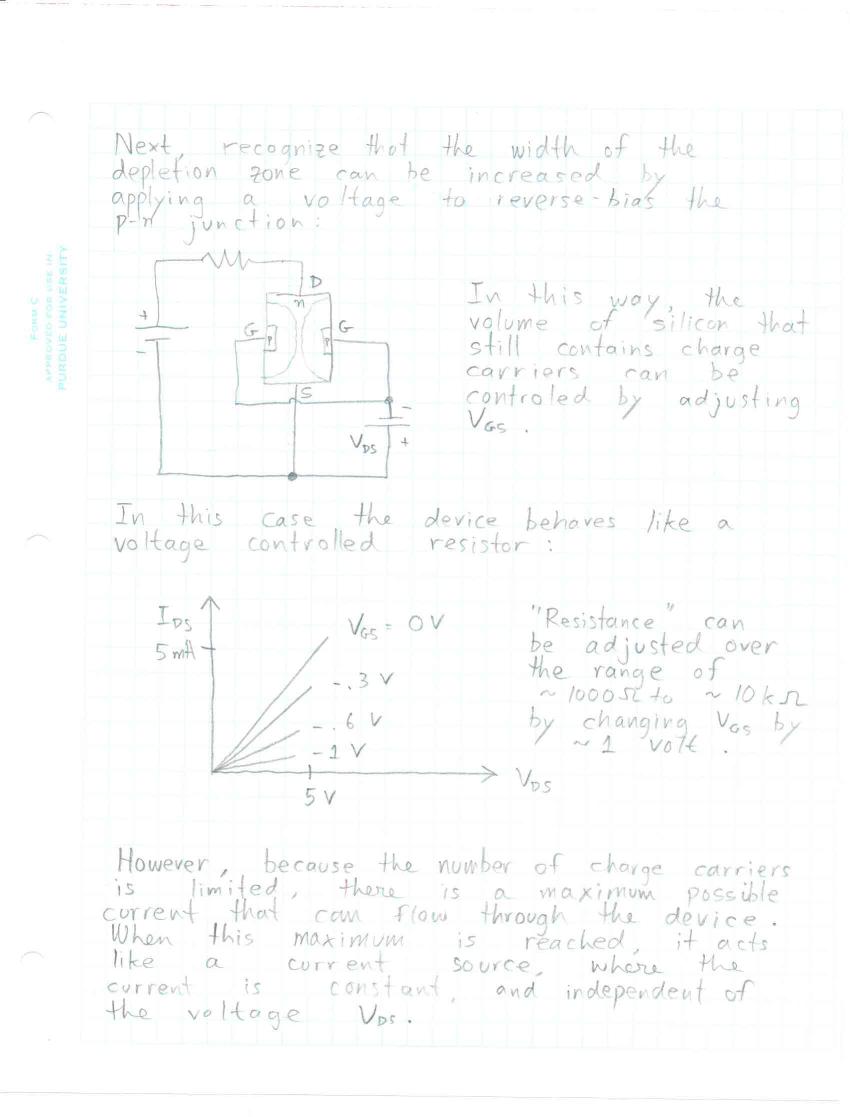 Next, recognize that the width of the
depletion zone can be increased by
applying a voltage to reverse-bias the
p-n junction:
FORM C
APPROVED FOR USE IN
PURDUE UNIVERSITY
D
n
+
-
G
P
P
G
S
-
V_DS
+
In this way, the
volume of silicon that
still contains charge
carriers can be
controled by adjusting
V_GS .
In this case the device behaves like a
voltage controlled resistor:
I_DS
5 mA
V_GS = 0V
-.3 V
-.6 V
-1 V
V_DS
5 V
"Resistance" can
be adjusted over
the range of
~ 1000Ω to ~ 10kΩ
by changing V_GS by
~ 1 volt .
However, because the number of charge carriers
is limited, there is a maximum possible
current that can flow through the device.
When this maximum is reached, it acts
like a current source, where the
current is constant, and independent of
the voltage V_DS.